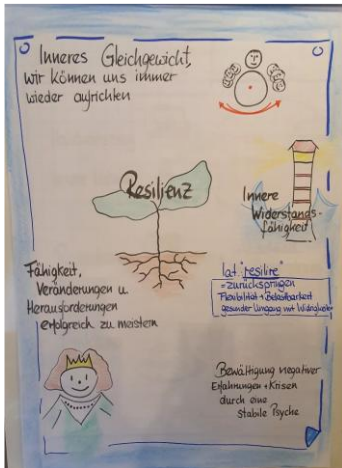 Inneres Gleichgewicht,
wir können uns immer
wieder aufrichten
Resilienz
Innere
Widerstands-
fähigkeit
Fähigkeit,
Veränderungen u.
Herausforderungen
erfolgreich zu meistern
lat. "resilire"
=zurückspringen
Flexibilität + Belastbarkeit
gesunder Umgang mit Widrigkeiten
Bewältigung negativer
Erfahrungen + Krisen
durch eine
stabile Psyche